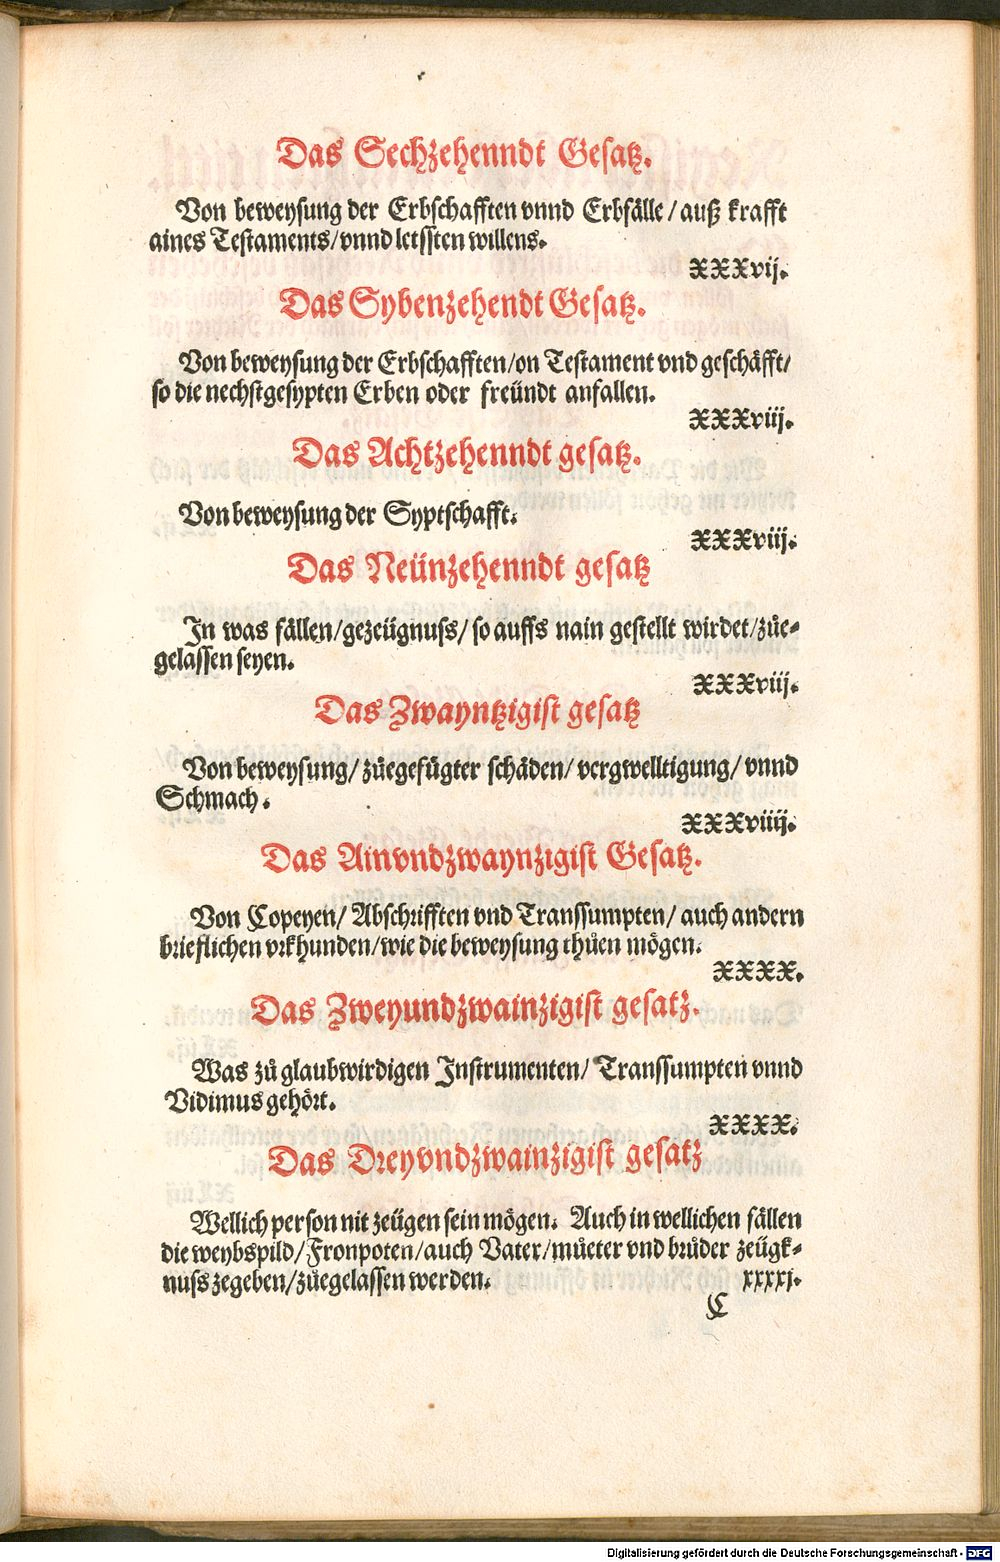 Das Sechzehenndt Gesatz.
Von beweysung der Erbschafften vnnd Erbfälle / auß krafft
aines Testaments/vnnd letssten willens.
XXXvij.
Das Sybenzehendt Gesatz.
Von beweysung der Erbschafften/on Testament vnd geschäfft/
so die nechstgesypten Erben oder freündt anfallen.
XXXviij.
Das Achtzehenndt gesatz.
Von beweysung der Syptschafft.
XXXviij.
Das Neünzehenndt gesatz
In was fällen/gezeügnuss/ so auffs nain gestellt wirdet/zůe-
gelassen seyen.
XXXviij.
Das Zwayntzigist gesatz
Von beweysung/ zůegefügter schäden/ vergwelltigung/ vnnd
Schmach.
XXXviiij.
Das Ainvndzwaynzigist Gesatz.
Von Copeyen/ Abschrifften vnd Transsumpten/ auch andern
brieflichen vrkhunden/wie die beweysung thůen mögen.
XXXX.
Das Zweyundzwainzigist gesatz.
Was zů glaubwirdigen Instrumenten/ Transsumpten vnnd
Vidimus gehört.
XXXX.
Das Dreyvndzwainzigist gesatz
Wellich person nit zeügen sein mögen. Auch in wellichen fällen
die weybspild/Fronpoten/auch Vater/můeter vnd brůder zeügk-
nuss zegeben/zůegelassen werden. xxxxj.
C
Digitalisierung gefördert durch die Deutsche Forschungsgemeinschaft - DFG